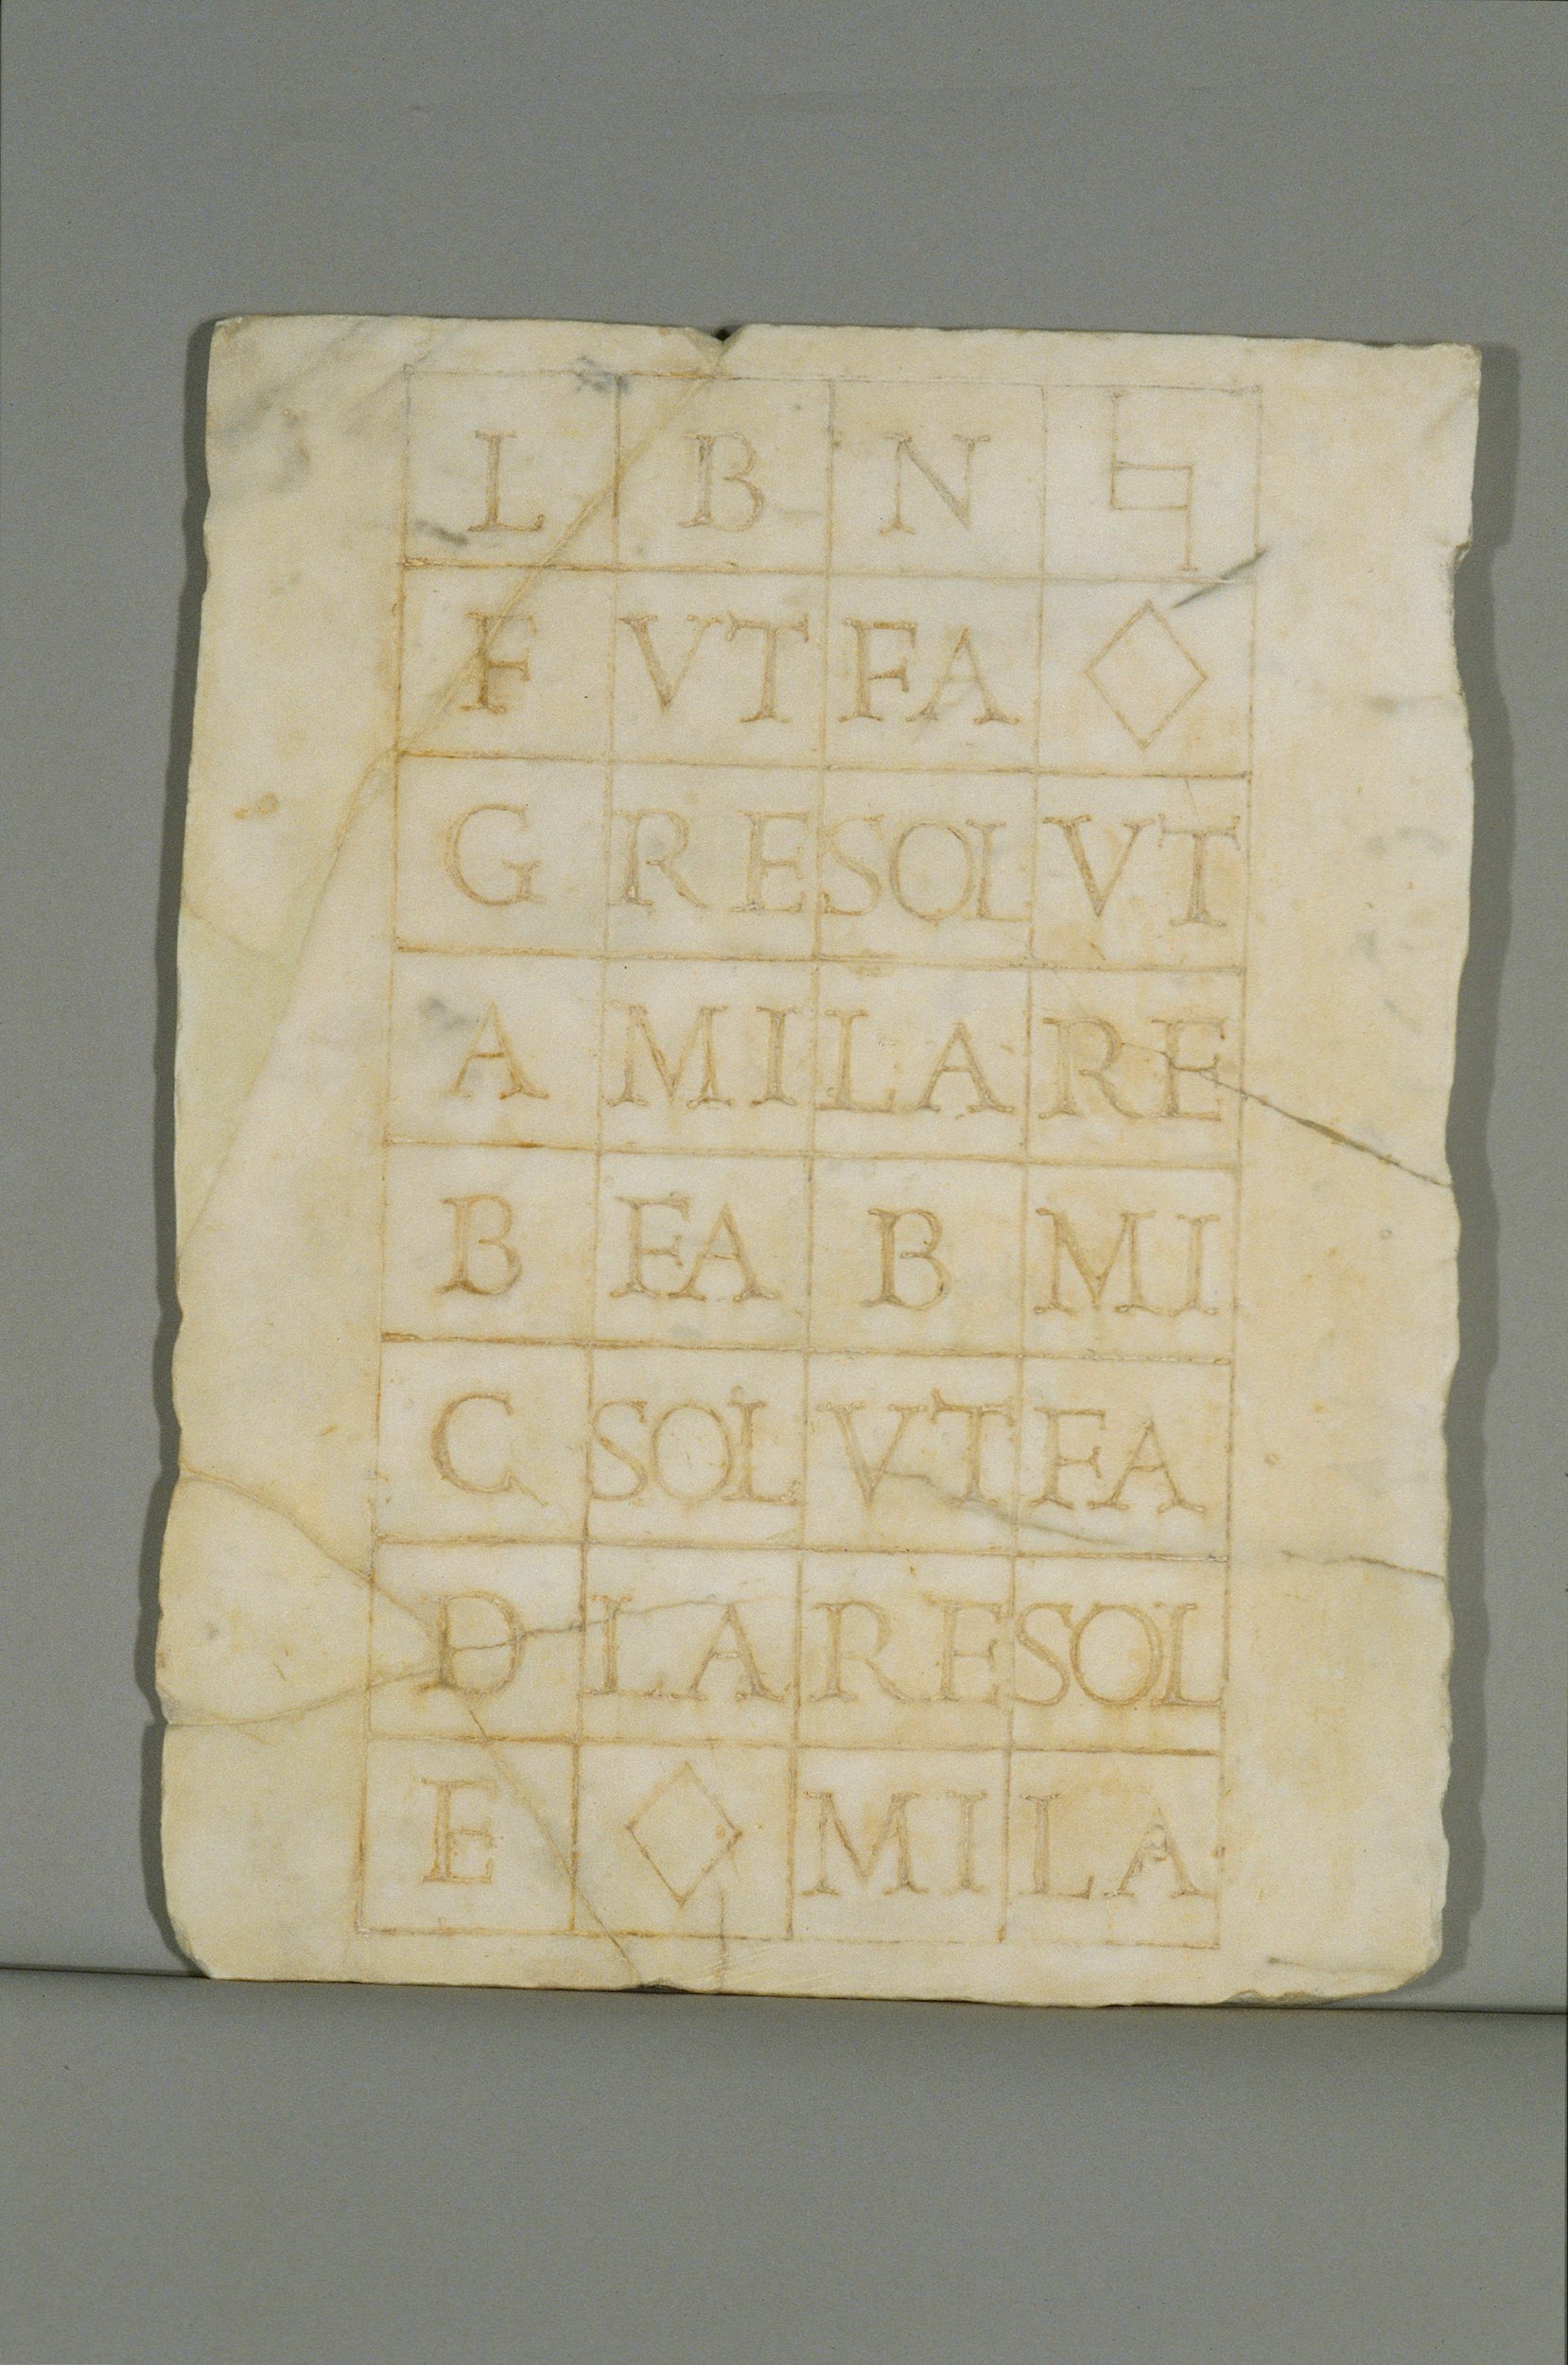 L B N ♮
F VT FA ◇
G RE SOL VT
A MI LA RE
B FA B MI
C SOL VT FA
D LA RE SOL
E ◇ MI LA